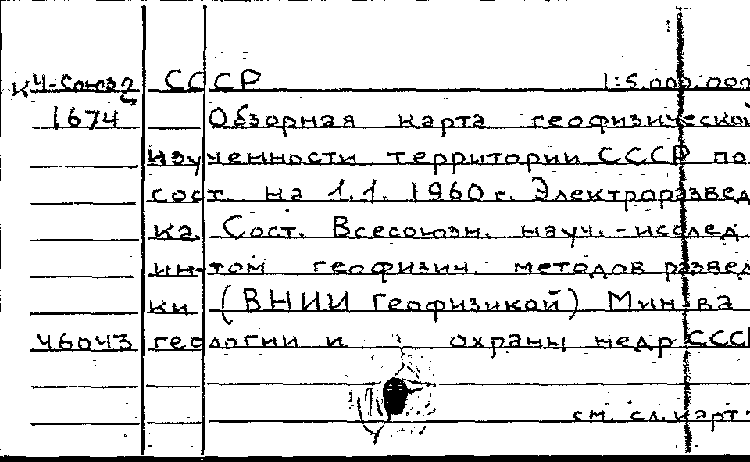 К Ч-Союз2 СССР 1:5.000.000
1674 Обзорная карта геофизической
изученности территории СССР по
сост. на 1.1. 1960 г. Электроразвед
ка. Сост. Всесоюзн. науч.-исслед
ин-том геофизич. методов развед
ки (ВНИИ Геофизикой) Мин-ва
46043 геологии и охраны недр СССР
см. сл. карт